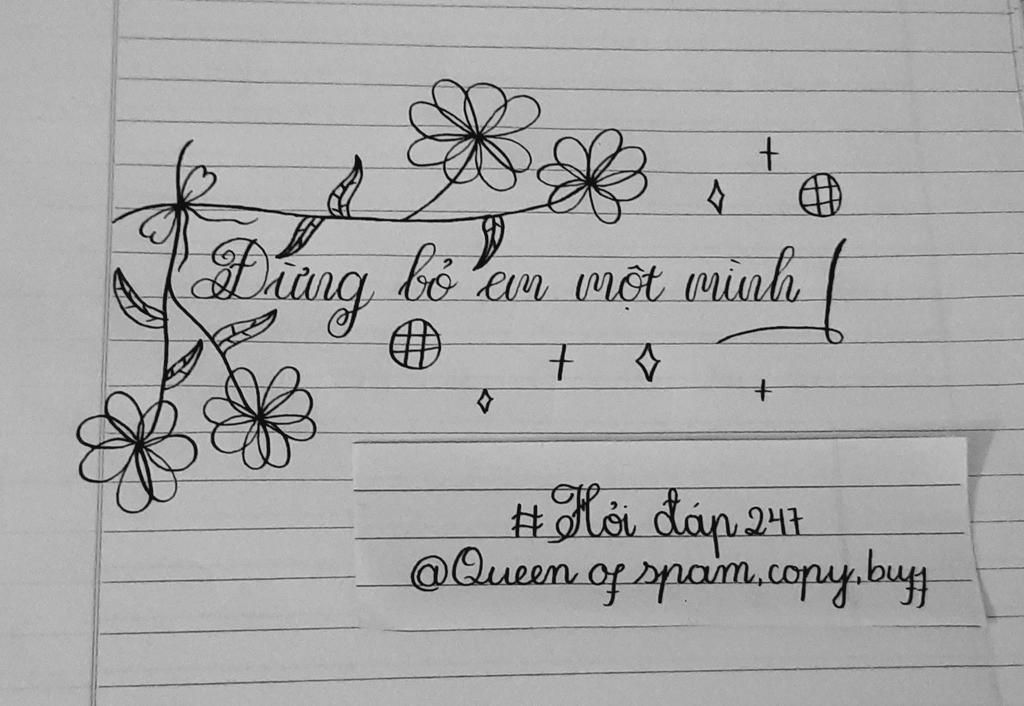 Đừng bỏ em một mình !
#Hỏi đáp 247
@Queen of spam.copy.buff